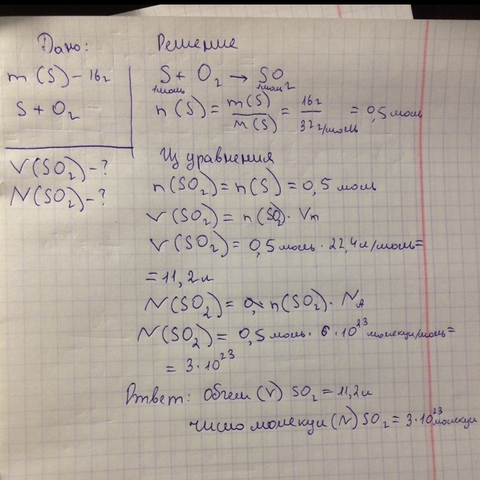 Дано:
m(S) - 16г
S + O₂
V(SO₂) - ?
N(SO₂) - ?
Решение
S + O₂ → SO₂
1моль 1моль
n(S) = m(S)/M(S) = 16г/32г/моль = 0,5 моль
Из уравнения
n(SO₂) = n(S) = 0,5 моль
V(SO₂) = n(SO₂) · Vm
V(SO₂) = 0,5 моль · 22,4 л/моль =
= 11,2 л
N(SO₂) = n(SO₂) · N_A
N(SO₂) = 0,5 моль · 6 · 10²³ молекул/моль =
= 3 · 10²³
Ответ: Объем (V) SO₂ = 11,2 л
число молекул (N) SO₂ = 3 · 10²³ молекул